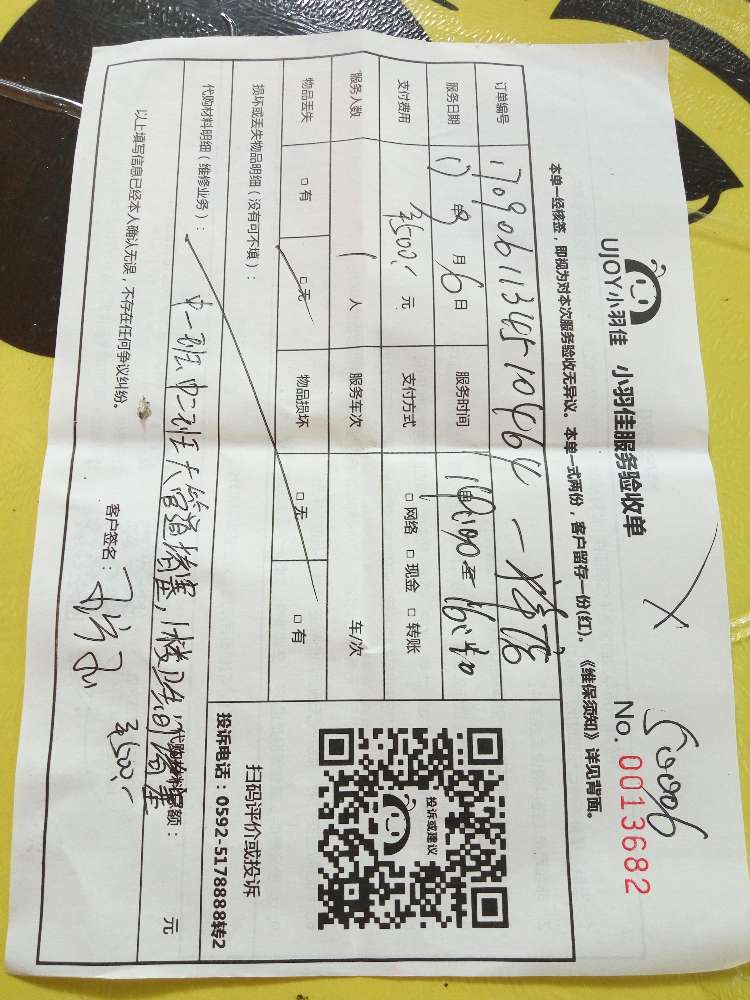 UJOY小羽佳 小羽佳服务验收单
50006
No. 0013682
本单一经核签，即视为对本次服务验收无异议。本单一式两份，客户留存一份(红)。《维保须知》详见背面。
订单编号
服务日期 17年9月6日 服务时间
支付费用 ¥500.- 元 支付方式 □ 网络 □ 现金 □ 转账
服务人数 1 人 服务车次 车/次
物品丢失 □ 有 □ 无 物品损坏 □ 无 □ 有
损坏或丢失物品明细（没有可不填）：
代购材料明细（维修业务）：
中一班中二班大管道堵塞，1楼卫生间堵塞
代购材料总额： 元
以上填写信息已经本人确认无误，不存在任何争议纠纷。
客户签名：
¥500.-
投诉或建议
扫码评价或投诉
投诉电话：0592-5178888转2